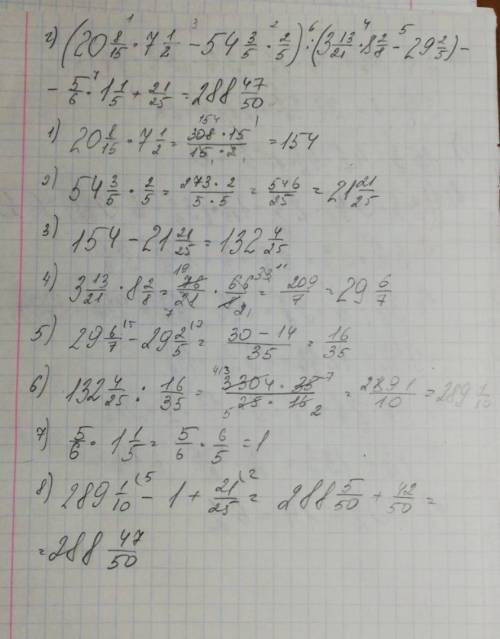 2) (20 8/15 · 7 1/2 − 54 3/5 · 2/5) : (3 13/21 · 8 2/8 − 29 2/5) −
− 5/6 · 1 1/5 + 21/25 = 288 47/50
1) 20 8/15 · 7 1/2 = 308 · 15 / 15 · 2 = 154
2) 54 3/5 · 2/5 = 273 · 2 / 5 · 5 = 546/25 = 21 21/25
3) 154 − 21 21/25 = 132 4/25
4) 3 13/21 · 8 2/8 = 76/21 · 66/8 = 209/7 = 29 6/7
5) 29 6/7 − 29 2/5 = 30 − 14 / 35 = 16/35
6) 132 4/25 : 16/35 = 3304 · 35 / 25 · 16 = 2891/10 = 289 1/10
7) 5/6 · 1 1/5 = 5/6 · 6/5 = 1
8) 289 1/10 − 1 + 21/25 = 288 5/50 + 42/50 =
= 288 47/50